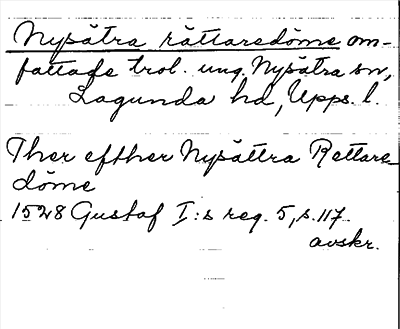 Nysätra rättaredöme om-
fattade trol. ung. Nysätra sn,
Lagunda hd, Upps. l.
Ther efther Nysättra Rettare
döme
1528 Gustaf I:s reg. 5, s. 117.
avskr.